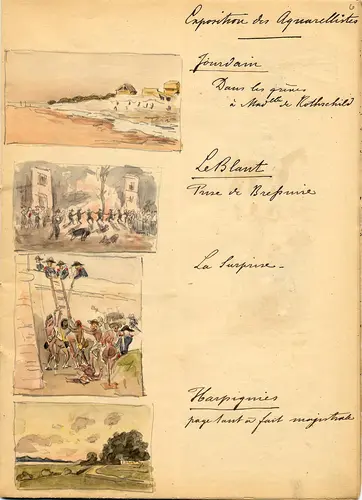 6
Exposition des Aquarellistes
Jourdain
Dans les grèves
à Mad^lle de Rothschild
Le Blant
Prise de Bressuire
La Surprise -
Harpignies
page tout à fait magistrale